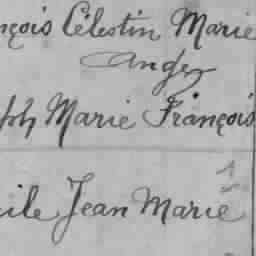 nçois Célestin Marie
Ange
ph Marie François
cile Jean Marie